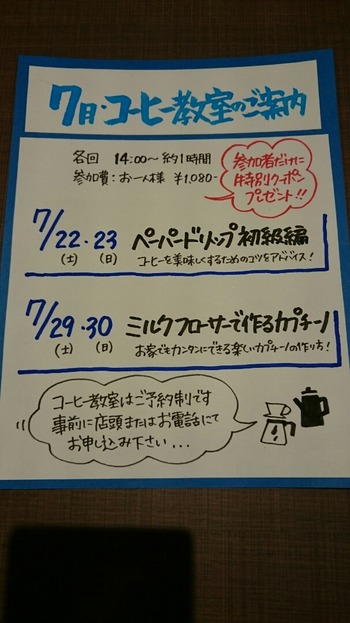 7月・コーヒー教室のご案内
各回 14:00～約1時間
参加費:お一人様 ¥1,080-
参加者だけに
特別クーポン
プレゼント!!
7/22・23 ペーパードリップ初級編
(土) (日) コーヒーを美味しくするためのコツをアドバイス!
7/29・30 ミルクフローサーで作るカプチーノ
(土) (日) お家でもカンタンにできる楽しいカプチーノの作り方!
コーヒー教室はご予約制です
事前に店頭またはお電話にて
お申し込み下さい...